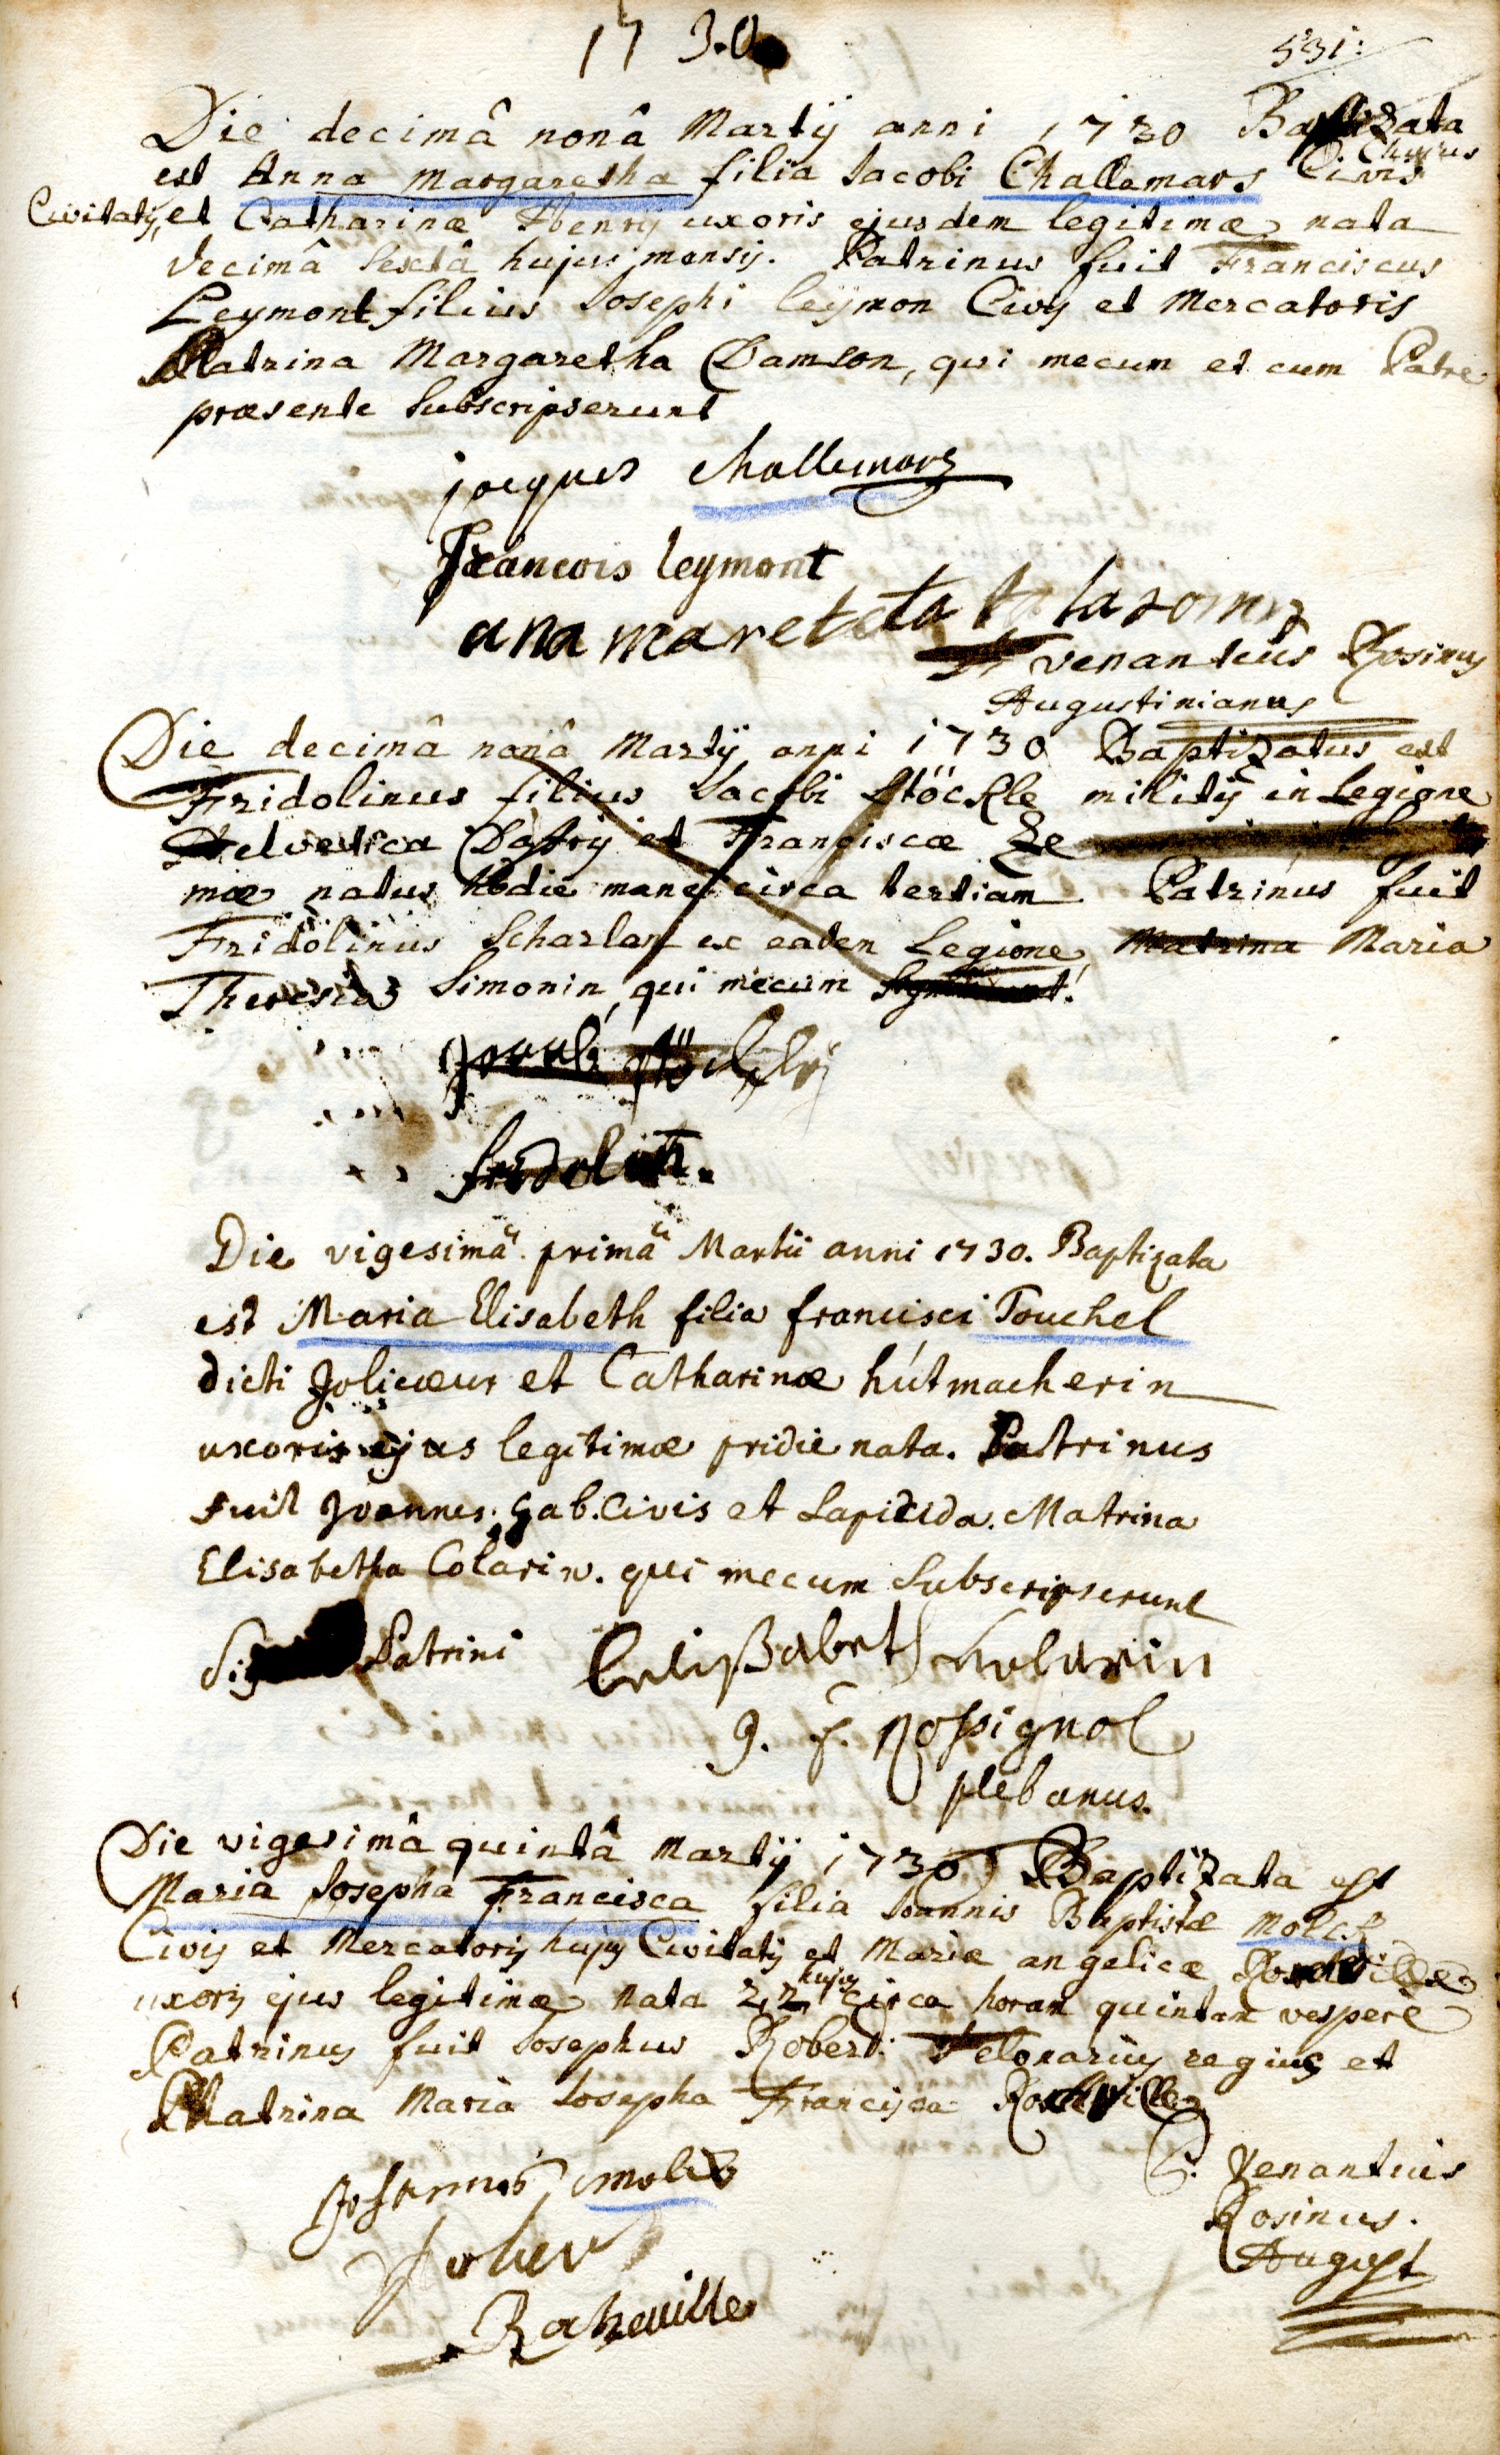 1730
531:
Die decimâ nonâ Martÿ anni 1730 Baptizata
est Anna Margaretha filia Iacobi Challamars Civis
Civitatis, et Catharinæ Henrÿ uxoris ejusdem legitimæ nata
decimâ sextâ hujus mensis. Patrinus fuit Franciscus
Leymont filius Iosephi leÿmon Civis et Mercatoris
Matrina Margaretha Damson, qui mecum et cum Patre
præsente subscripserunt
jacques challemars
francois leymont
ana mareteta
venantius Rosinus
Augustinianus
Die decimâ nonâ Martÿ anni 1730 Baptizatus est
Fridolinus filius Iacobi Stöckle militis in Legione
Helvetica Dasry et Franciscæ Ze
mæ natus hodie mane circa tertiam Patrinus fuit
Fridolinus Scharlar ex eaden Legione, Matrina Maria
Theresia Simonin, qui mecum
fridolin.
Die vigesimâ primâ Martii anni 1730. Baptizata
est Maria Elisabeth filia francisci Touchel
dicti Jolicœur et Catharinæ hútmacherin
uxoris ejus legitimæ pridie nata. Patrinus
fuit Joannes Gab. Civis et Lapicida. Matrina
Elisabetha Colarin. qui mecum subscripserunt
Patrini Eelißabeth Kolarin
J. f. Rossignol
plebanus.
Die vigesimâ quintâ Martÿ 1730 Baptizata est
Maria Iosepha Francisca filia Ioannis Baptistæ Molck
Civis et Mercatoris hujus Civitatis et Mariæ angelicæ
uxoris ejus legitimæ nata 22 hujus circa horam quintam vesperè
Patrinus fuit Iosephus Robert: Telonariÿ regius et
Matrina Maria Iosepha Francisca
Johannes molck
Rakeuille
P. Venantius
Rosinus.
August